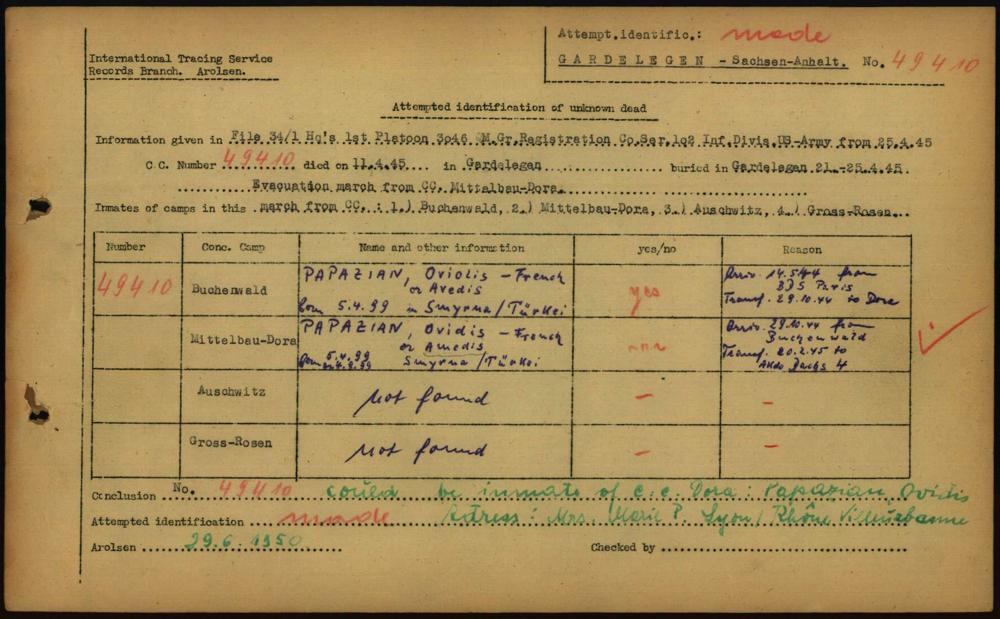 Attempt.identific.: made
International Tracing Service
Records Branch. Arolsen.
GARDELEGEN - Sachsen-Anhalt. No. 49410
Attempted identification of unknown dead
Information given in File 34/1 Hq's 1st Platoon 3046 QM.Gr.Registration Co.Ser.102 Inf.Divis.US-Army from 25.4.45
C.C. Number 49410 died on 11.4.45.... in Gardelegen........ buried in Gardelegen 21.-25.4.45.
Evacuation march from CC. Mittelbau-Dora.
Inmates of camps in this march from CC. : 1.) Buchenwald, 2.) Mittelbau-Dora, 3.) Auschwitz, 4.) Gross-Rosen..
Number Conc. Camp Name and other information yes/no Reason
49410 Buchenwald PAPAZIAN, Oviolis - French yes Arriv. 14.5.44 from
or Avedis BDS Paris
born 5.4.99 in Smyrna/Türkei Transf. 29.10.44 to Dora
Mittelbau-Dora PAPAZIAN, Ovidis - French Arriv. 29.10.44 from
or Amedis Buchenwald
born 5.4.99 Smyrna/Türkei Transf. 20.2.45 to
or 4.9.99 AKdo Dachs 4
Auschwitz Not found - -
Gross-Rosen Not found - -
Conclusion No. 49410 could be inmate of c.c. Dora : Papazian, Ovidis
Attempted identification made Adress : Mrs. Marie P. Lyon/Rhône Villeurbanne
Arolsen 29.6.1950 Checked by